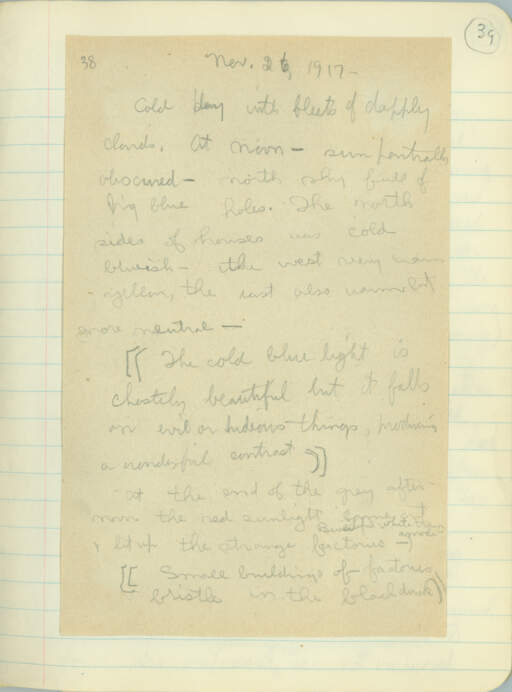 39
38
Nov. 26, 1917-
Cold day with fleets of dapply
clouds. At noon - sun partially
obscured - north sky full of
big blue holes. The north
sides of houses was cold
blueish - the west very warm
- yellow, the east also warm but
more neutral -
[( The cold blue light is
chastely beautiful but it falls
on evil or hideous things, producing
a wonderful contrast )]
at the end of the grey after-
noon the red sunlight came out
white
& lit up the strange factories -
[[ Small buildings of factories
bristle in the black dusk )